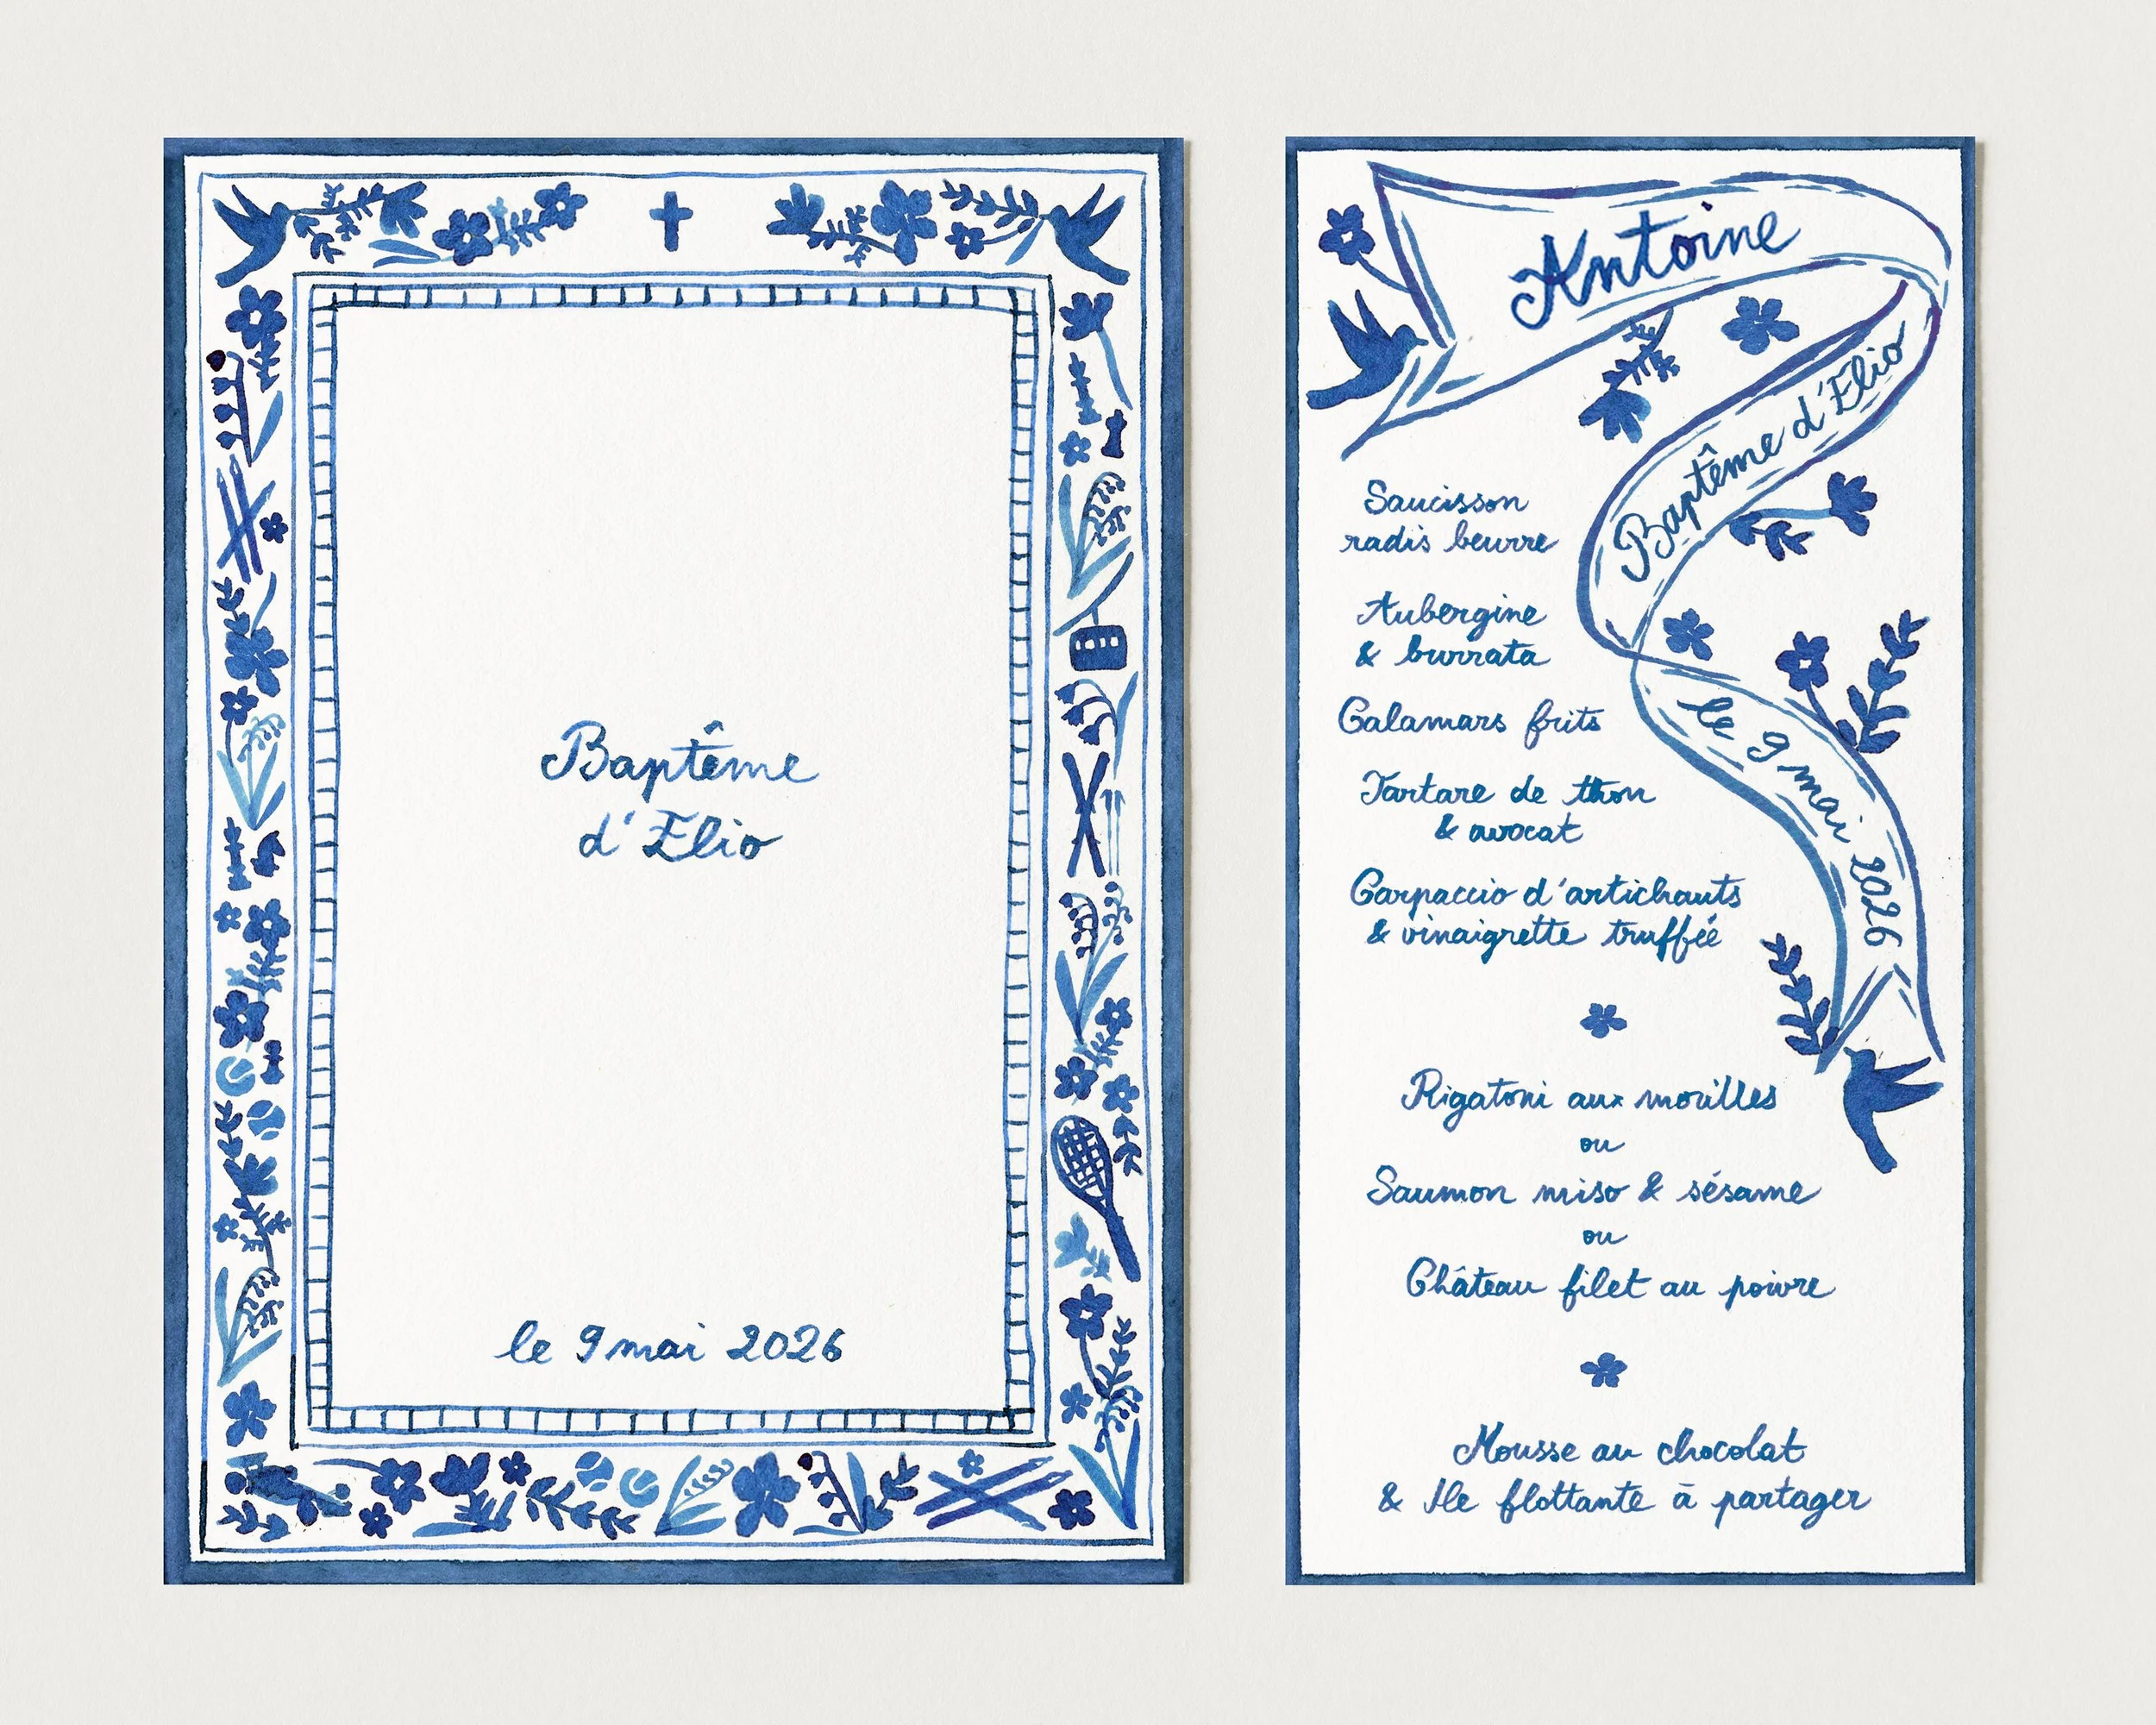 Baptême
d'Elio
le 9 mai 2026
Antoine
Baptême d'Elio
le 9 mai 2026
Saucisson
radis beurre
Aubergine
& burrata
Calamars frits
Tartare de thon
& avocat
Carpaccio d'artichauts
& vinaigrette truffée
Rigatoni aux morilles
ou
Saumon miso & sésame
ou
Château filet au poivre
Mousse au chocolat
& Ile flottante à partager